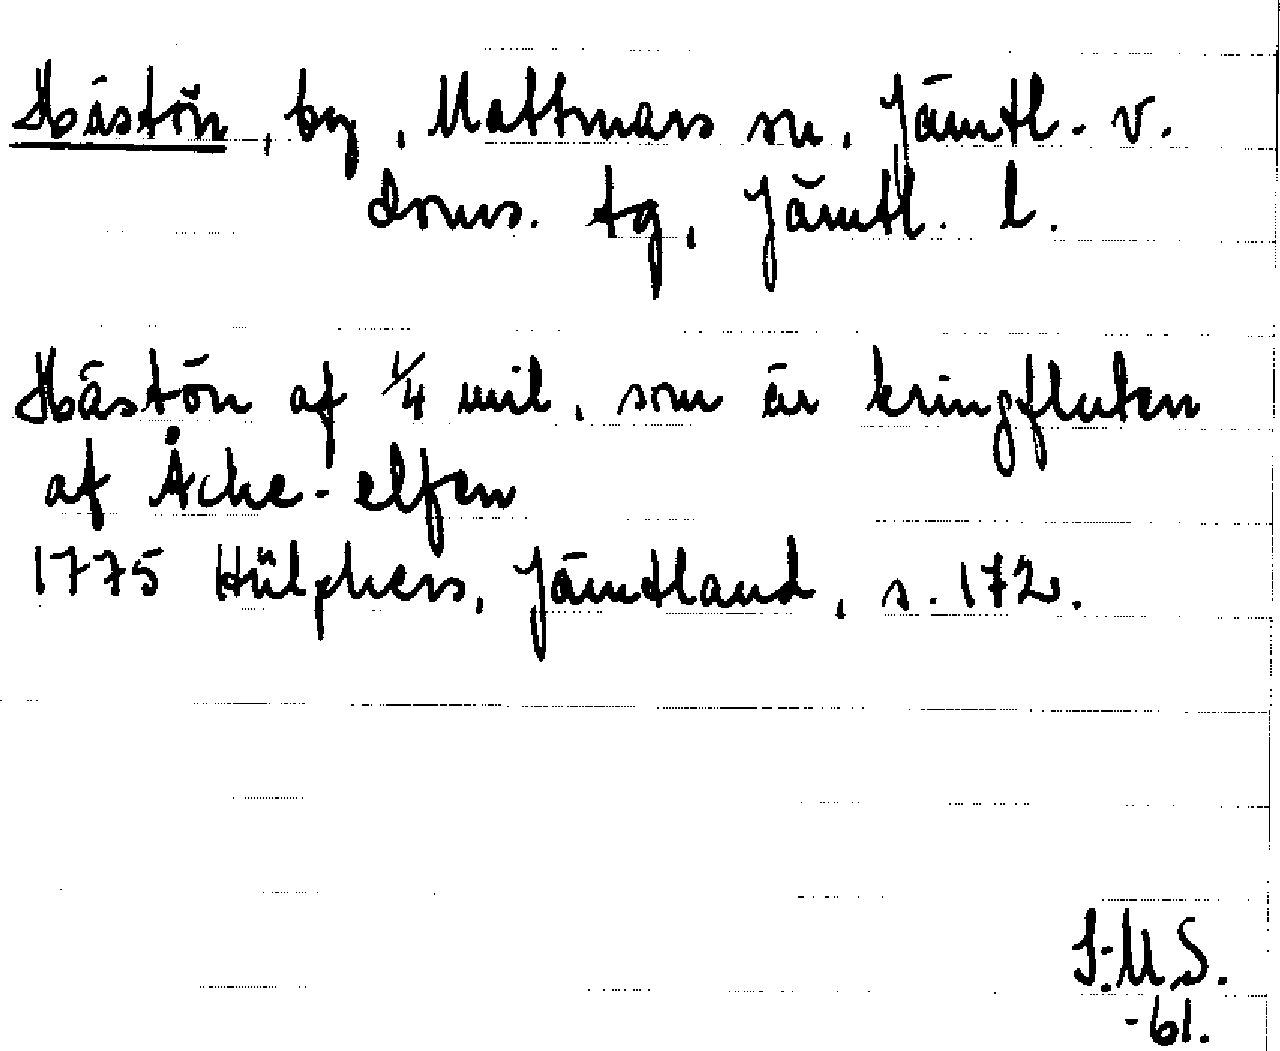 Hästön, by, Mattmars sn, Jämtl. v.
doms. tg, Jämtl. l.
Hästön af 1/4 mil, som är kringfluten
af Åche-elfen
1775 Hülphers, Jämtland, s. 172.
I.M.S.
-61.